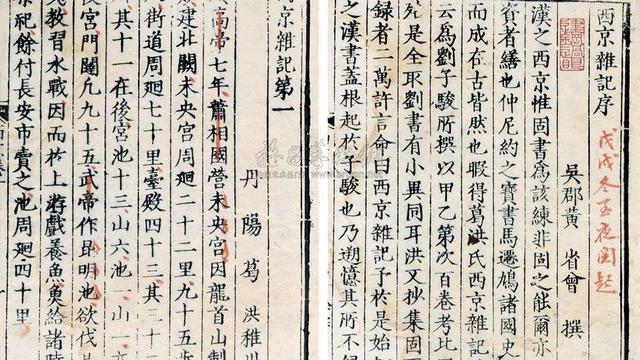 西京雜記序
戊戌冬至夜閱起
吳郡黃 省曾 撰
漢之西京惟固書為該練非固之能爾亦
資者繕也仲尼約之寶書馬遷鳩諸國史
而成在古皆然也暇得葛洪氏西京雜記
云為劉子駿所撰以甲乙第次百卷考比
是全取劉書有小異同耳洪又抄集固
錄者二萬許言命曰西京雜記予於是始
之漢書蓋根起於駿也乃遡憶其所不錄
京雜記第一
丹陽葛 洪稚川
高帝七年蕭相國營未央宮因龍首山制
建北闕未央宮周廻二十二里九十五步
街道周廻七十里臺殿四十三其三十
其十一在後宮池十三山六池一山一亦
後宮門闥凡九十五武帝作昆明池欲伐
夷教習水戰因而於上游戲養魚魚給諸陵
祀餘付長安市賣之池周廻四十里